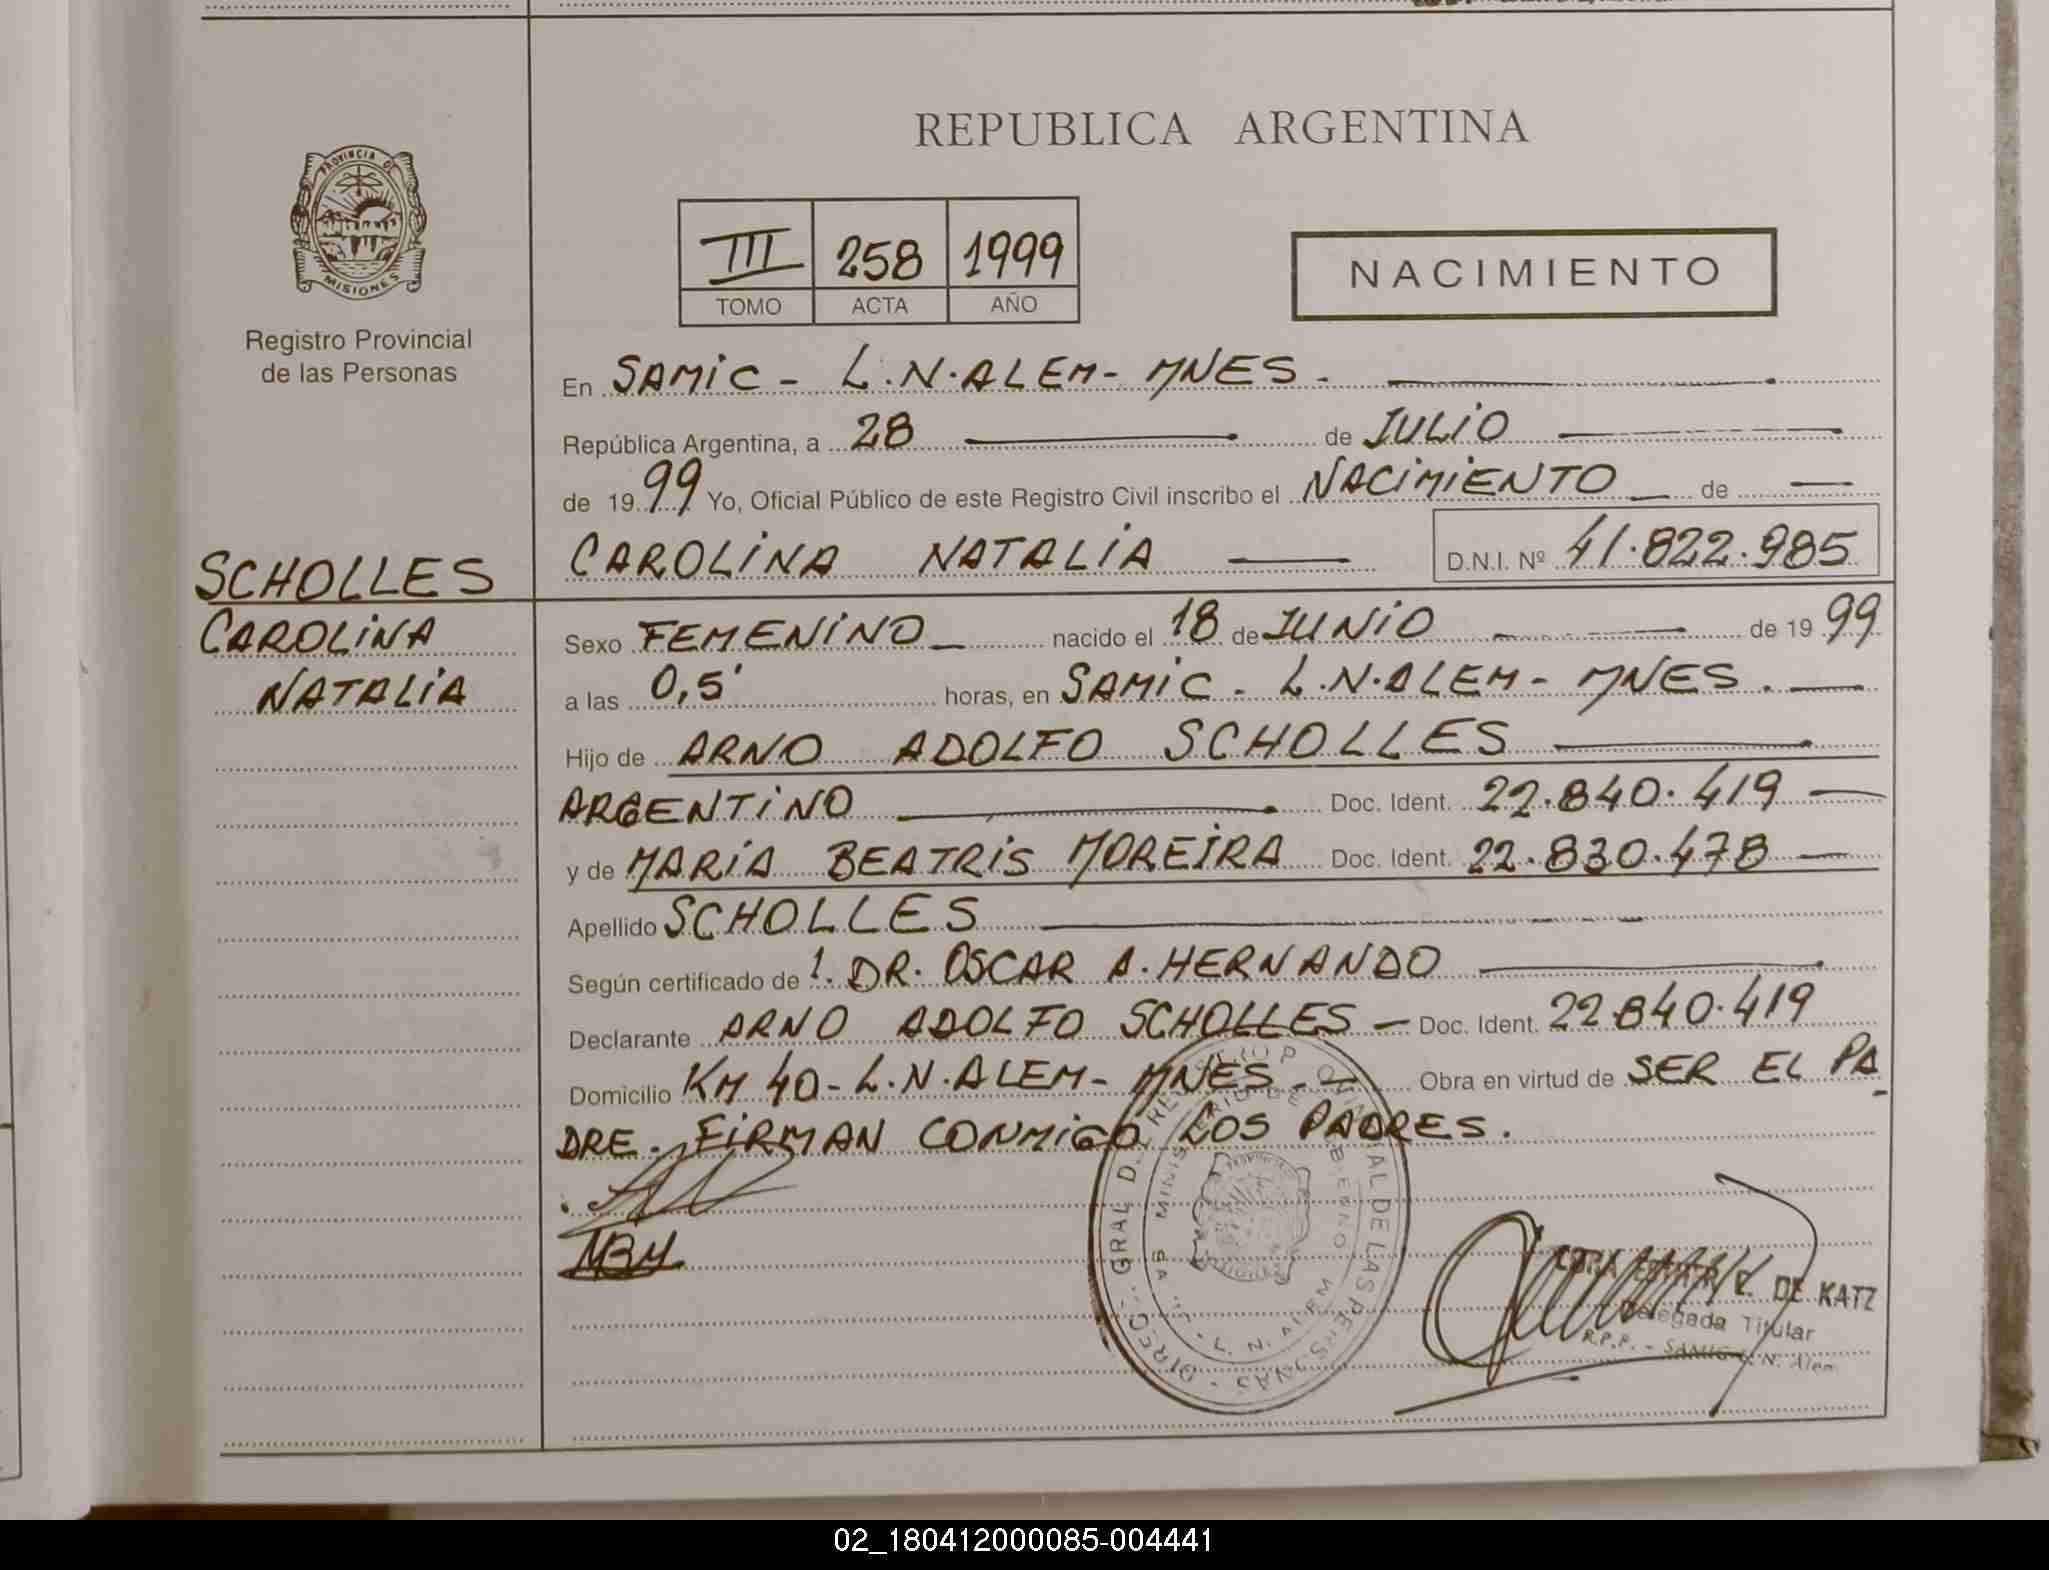 REPUBLICA ARGENTINA
PROVINCIA DE
MISIONES
Registro Provincial
de las Personas
III 258 1999
TOMO ACTA AÑO
NACIMIENTO
En SAMIC - L.N.ALEM - MNES.
República Argentina, a 28 de JULIO
de 1999 Yo, Oficial Público de este Registro Civil inscribo el NACIMIENTO de
CAROLINA NATALIA D.N.I. Nº 41.822.985
SCHOLLES
CAROLINA
NATALIA
Sexo FEMENINO nacido el 18 de JUNIO de 1999
a las 0,5' horas, en SAMIC - L.N.ALEM - MNES.
Hijo de ARNO ADOLFO SCHOLLES
ARGENTINO Doc. Ident. 22.840.419
y de MARIA BEATRIS MOREIRA Doc. Ident. 22.830.478
Apellido SCHOLLES
Según certificado de 1. DR. OSCAR A. HERNANDO
Declarante ARNO ADOLFO SCHOLLES - Doc. Ident. 22.840.419
Domicilio KM 40 - L.N.ALEM - MNES. - Obra en virtud de SER EL PA
DRE. FIRMAN CONMIGO LOS PADRES.
MBM
DE KATZ
Delegada Titular
R.P.P. - SAMIC L.N. Alem
02_180412000085-004441